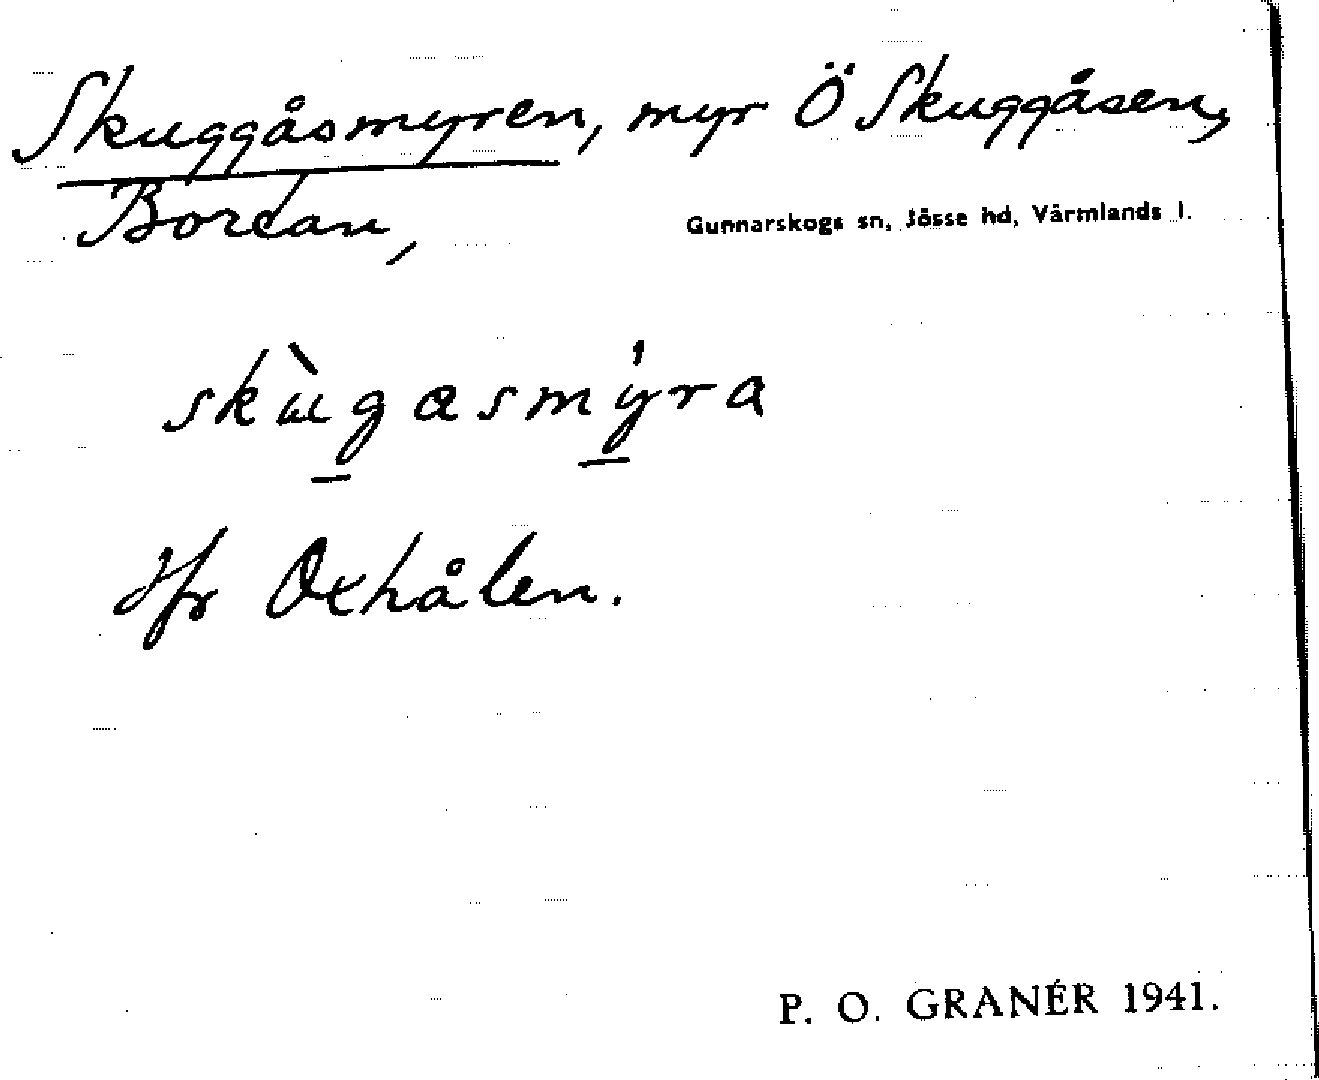 Skuggåsmyren, myr Ö Skuggåsen,
Bordan,
Gunnarskogs sn, Jösse hd, Värmlands l.
skùgasmýra
Jfr Oxhålen.
P. O. GRANÉR 1941.